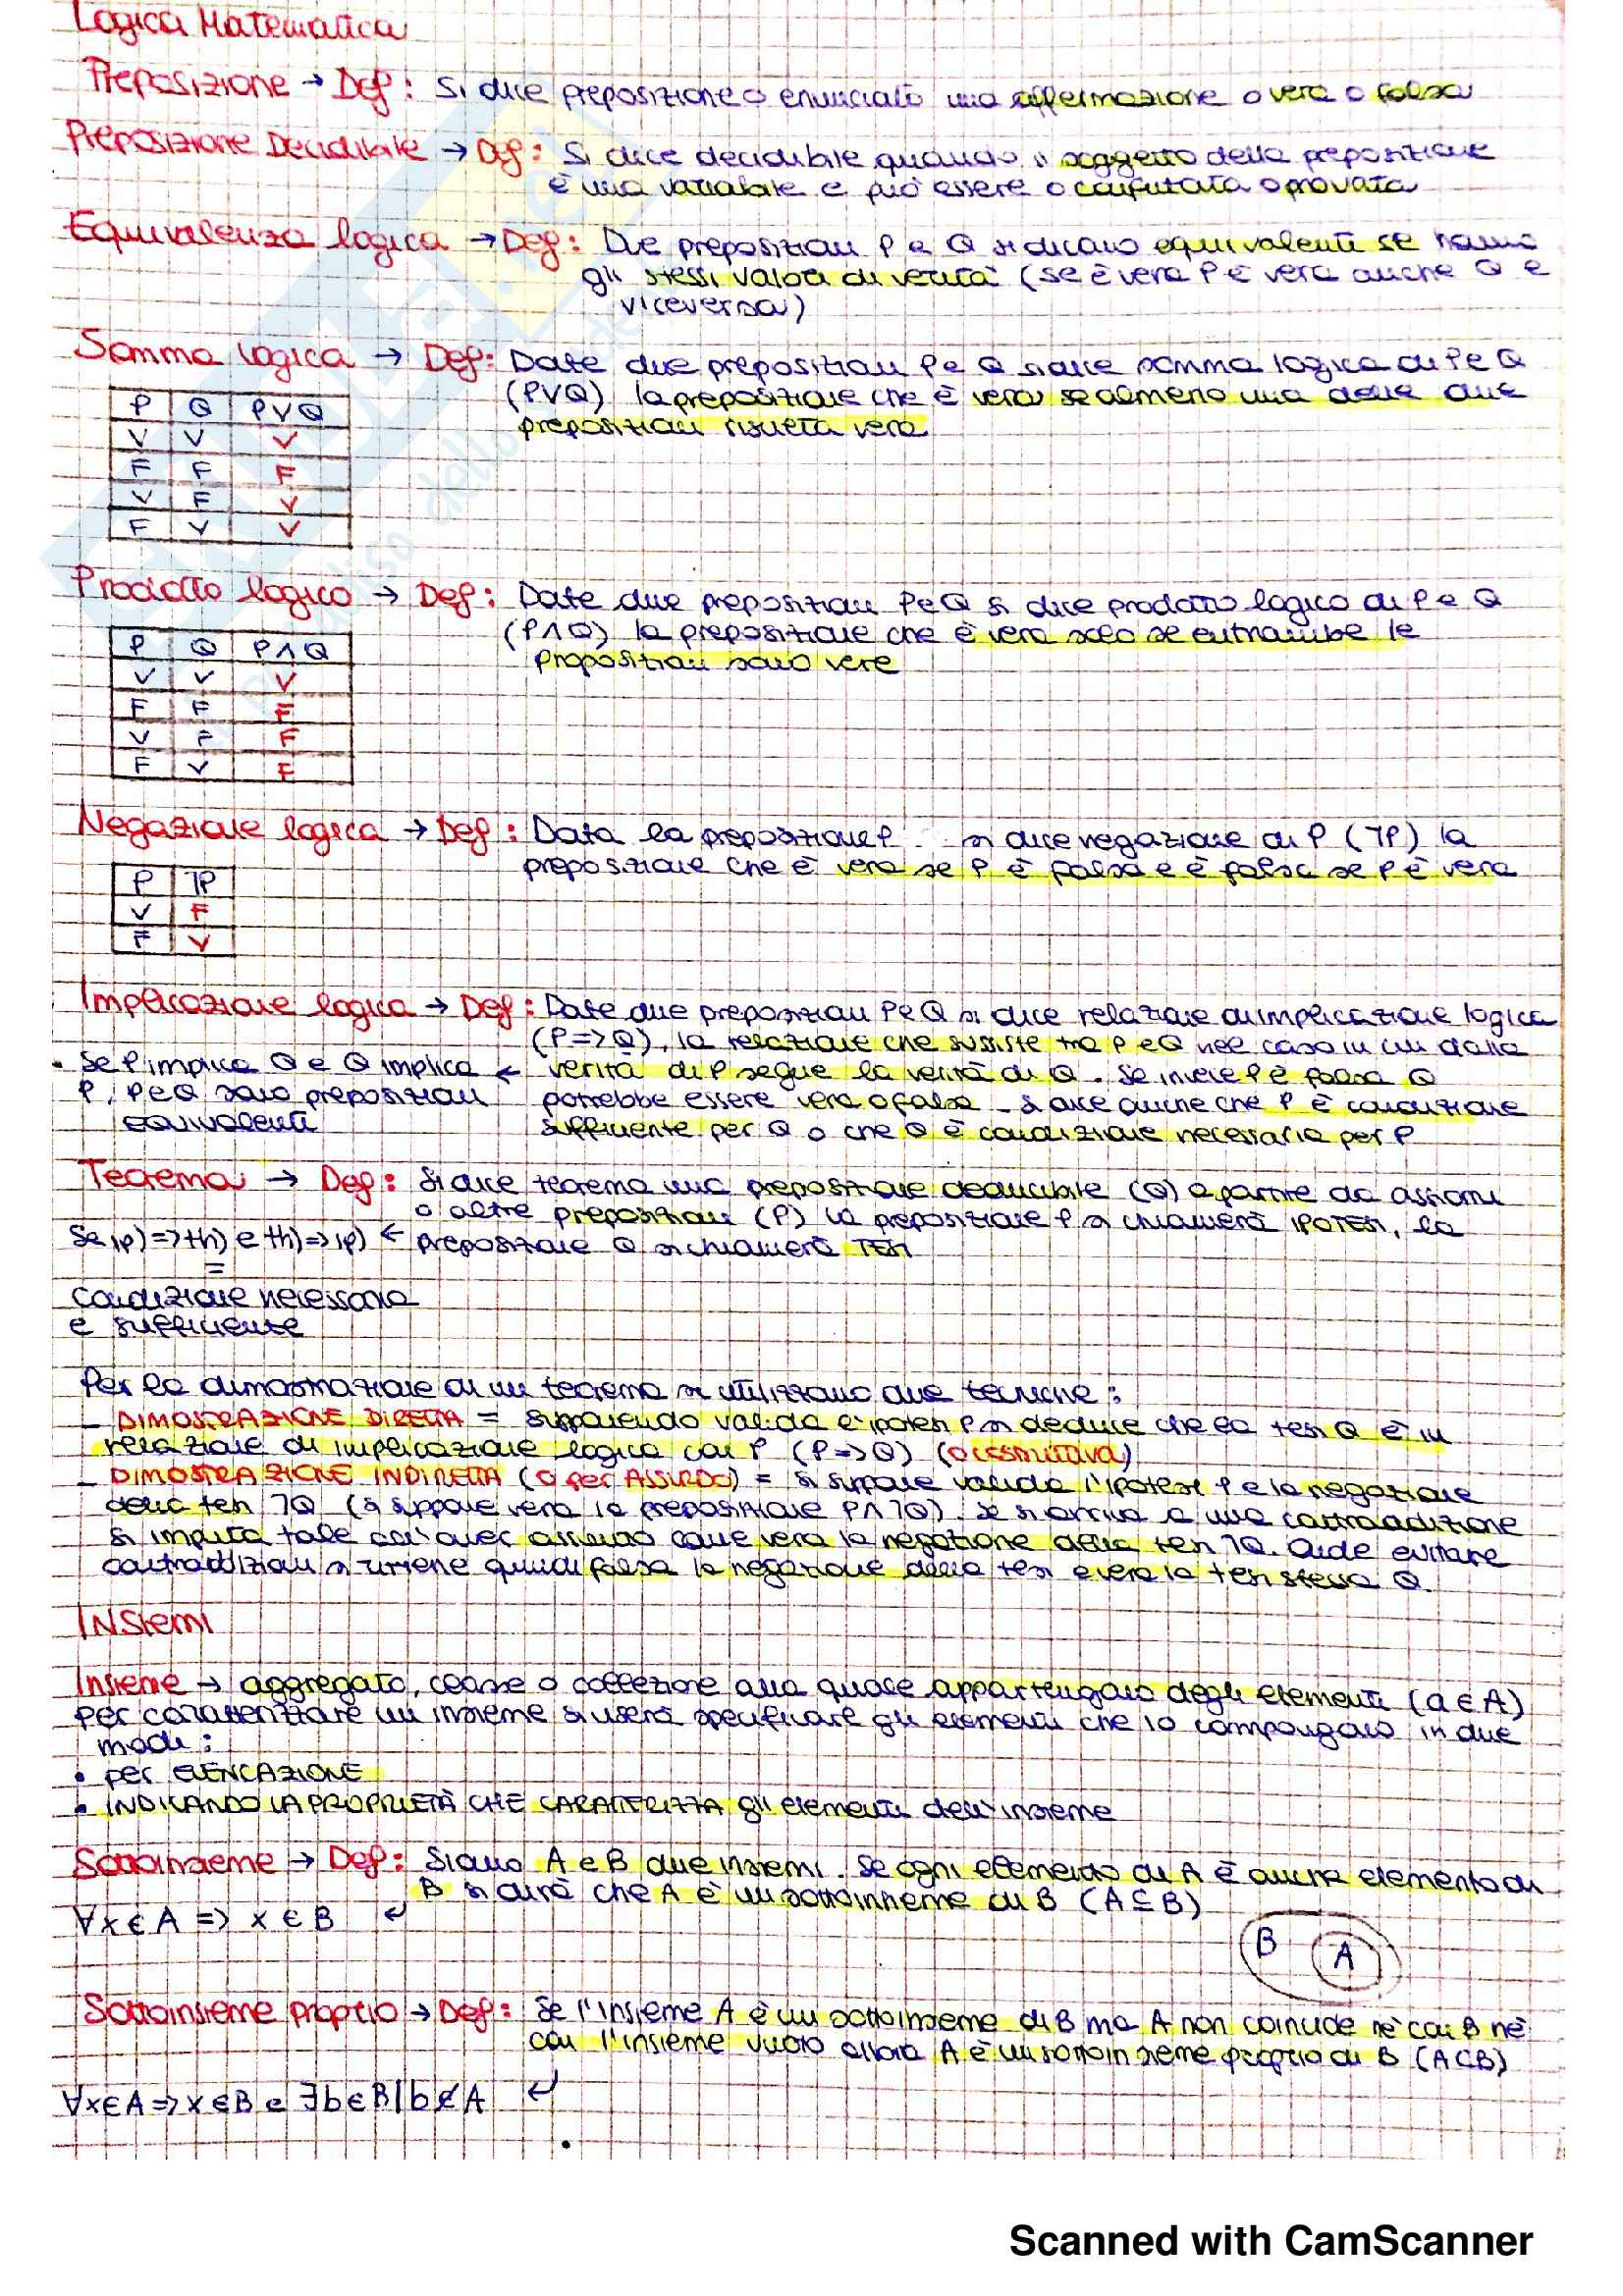 Logica Matematica
Preposizione → Def: Si dice preposizione o enunciato una affermazione o vera o falsa
Preposizione Decidibile → Def: Si dice decidibile quando il soggetto della preposizione
è una variabile e può essere o confutata o provata
Equivalenza logica → Def: Due preposizioni P e Q si dicano equivalenti se hanno
gli stessi valori di verità (se è vera P è vera anche Q e
viceversa)
Somma logica → Def: Date due preposizioni P e Q si dice somma logica di P e Q
(P∨Q) la preposizione che è vera se almeno una delle due
preposizioni risulta vera
P Q P∨Q
V V V
F F F
V F V
F V V
Prodotto logico → Def: Date due preposizioni P e Q si dice prodotto logico di P e Q
(P∧Q) la preposizione che è vera solo se entrambe le
proposizioni sono vere
P Q P∧Q
V V V
F F F
V F F
F V F
Negazione logica → Def: Data la preposizione P si dice negazione di P (¬P) la
preposizione che è vera se P è falsa e è falsa se P è vera
P ¬P
V F
F V
Implicazione logica → Def: Date due preposizioni P e Q si dice relazione di implicazione logica
(P=>Q), la relazione che sussiste tra P e Q nel caso in cui dalla
verità di P segue la verità di Q. Se invece P è falsa Q
potrebbe essere vera o falsa - si dice anche che P è condizione
sufficiente per Q o che Q è condizione necessaria per P
• Se P implica Q e Q implica ←
P, P e Q sono preposizioni
equivalenti
Teorema → Def: Si dice teorema una preposizione deducibile (Q) a partire da assiomi
o altre preposizioni (P) la preposizione P si chiamerà IPOTESI, la
preposizione Q si chiamerà TESI
Se ip) => th) e th) => ip) ←
=
condizione necessaria
e sufficiente
Per la dimostrazione di un teorema si utilizzano due tecniche:
- DIMOSTRAZIONE DIRETTA = supponendo valida l'ipotesi P si deduce che la tesi Q è in
relazione di implicazione logica con P (P=>Q) (o costruttiva)
- DIMOSTRAZIONE INDIRETTA (o per ASSURDO) = si suppone valida l'ipotesi P e la negazione
della tesi ¬Q (si suppone vera la preposizione P∧¬Q). Se si arriva a una contraddizione
si imputa tale cosa aver assunto come vera la negazione della tesi ¬Q. Onde evitare
contraddizioni si ritiene quindi falsa la negazione della tesi e vera la tesi stessa Q.
INSIEMI
Insieme → aggregato, classe o collezione alla quale appartengano degli elementi (a ∈ A)
per caratterizzare un insieme si userà specificare gli elementi che lo compongano in due
modi:
• per ELENCAZIONE
• INDICANDO LA PROPRIETÀ CHE CARATTERIZZA gli elementi dell'insieme
Sottoinsieme → Def: Siano A e B due insiemi. Se ogni elemento di A è anche elemento di
B si dirà che A è un sottoinsieme di B (A⊆B)
∀x∈A => x∈B ↵
B A
Sottoinsieme proprio → Def: Se l'insieme A è un sottoinsieme di B ma A non coincide nè con B nè
con l'insieme vuoto allora A è un sottoinsieme proprio di B (A⊂B)
∀x∈A => x∈B e ∃b∈B|b∉A ↵
Scanned with CamScanner